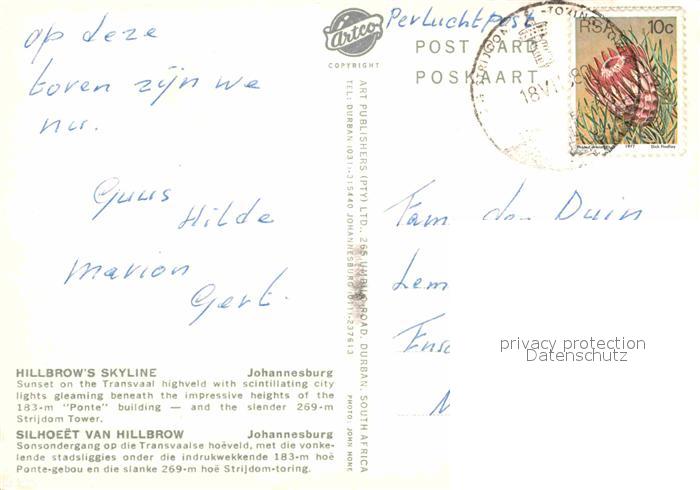 op deze
toren zijn we
nu.
Guus
Hilde
Marion
Gert.
Artco
COPYRIGHT
Per Luchtpost
POST CARD
POSKAART
RSA 10c
1977 Dick Findlay
ART PUBLISHERS (PTY) LTD., 265 UMBILO ROAD, DURBAN, SOUTH AFRICA
TEL: DURBAN (031)-315440 JOHANNESBURG (011)-237613
PHOTO: JOHN HONE
Fam Duin
Lem
Ensc
privacy protection
Datenschutz
HILLBROW'S SKYLINE Johannesburg
Sunset on the Transvaal highveld with scintillating city
lights gleaming beneath the impressive heights of the
183-m "Ponte" building — and the slender 269-m
Strijdom Tower.
SILHOEËT VAN HILLBROW Johannesburg
Sonsondergang op die Transvaalse hoëveld, met die vonke-
lende stadsliggies onder die indrukwekkende 183-m hoë
Ponte-gebou en die slanke 269-m hoë Strijdom-toring.